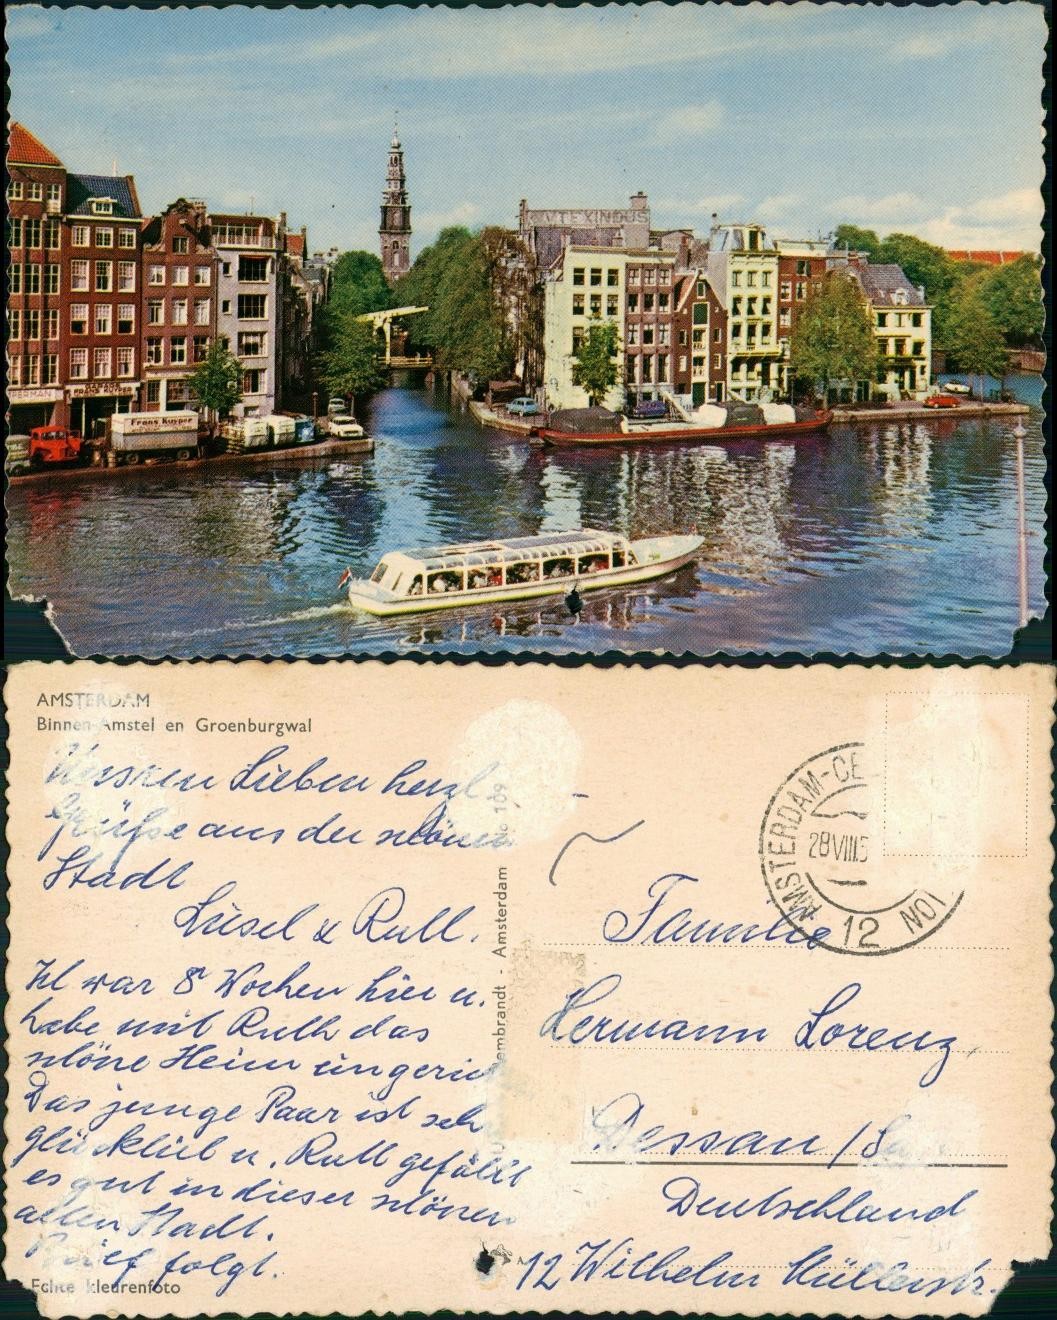 TEXINDUS
Frans Kuyper
AMSTERDAM
Binnen-Amstel en Groenburgwal
Unseren Lieben herzl
Grüße aus der schönen
Stadt
Liesel & Ruth.
Ich war 8 Wochen hier u.
habe mit Ruth das
schöne Heim
Das junge Paar ist seh
glücklich u. Ruth gefällt
es gut in dieser schönen
alten Stadt.
Brief folgt.
Echte kleurenfoto
embrandt - Amsterdam No 109
AMSTERDAM-CE
28 VIII 5
12 NOI
Familie
Hermann Lorenz,
Dessau /
Deutschland
12 Wilhelm Müllerstr.